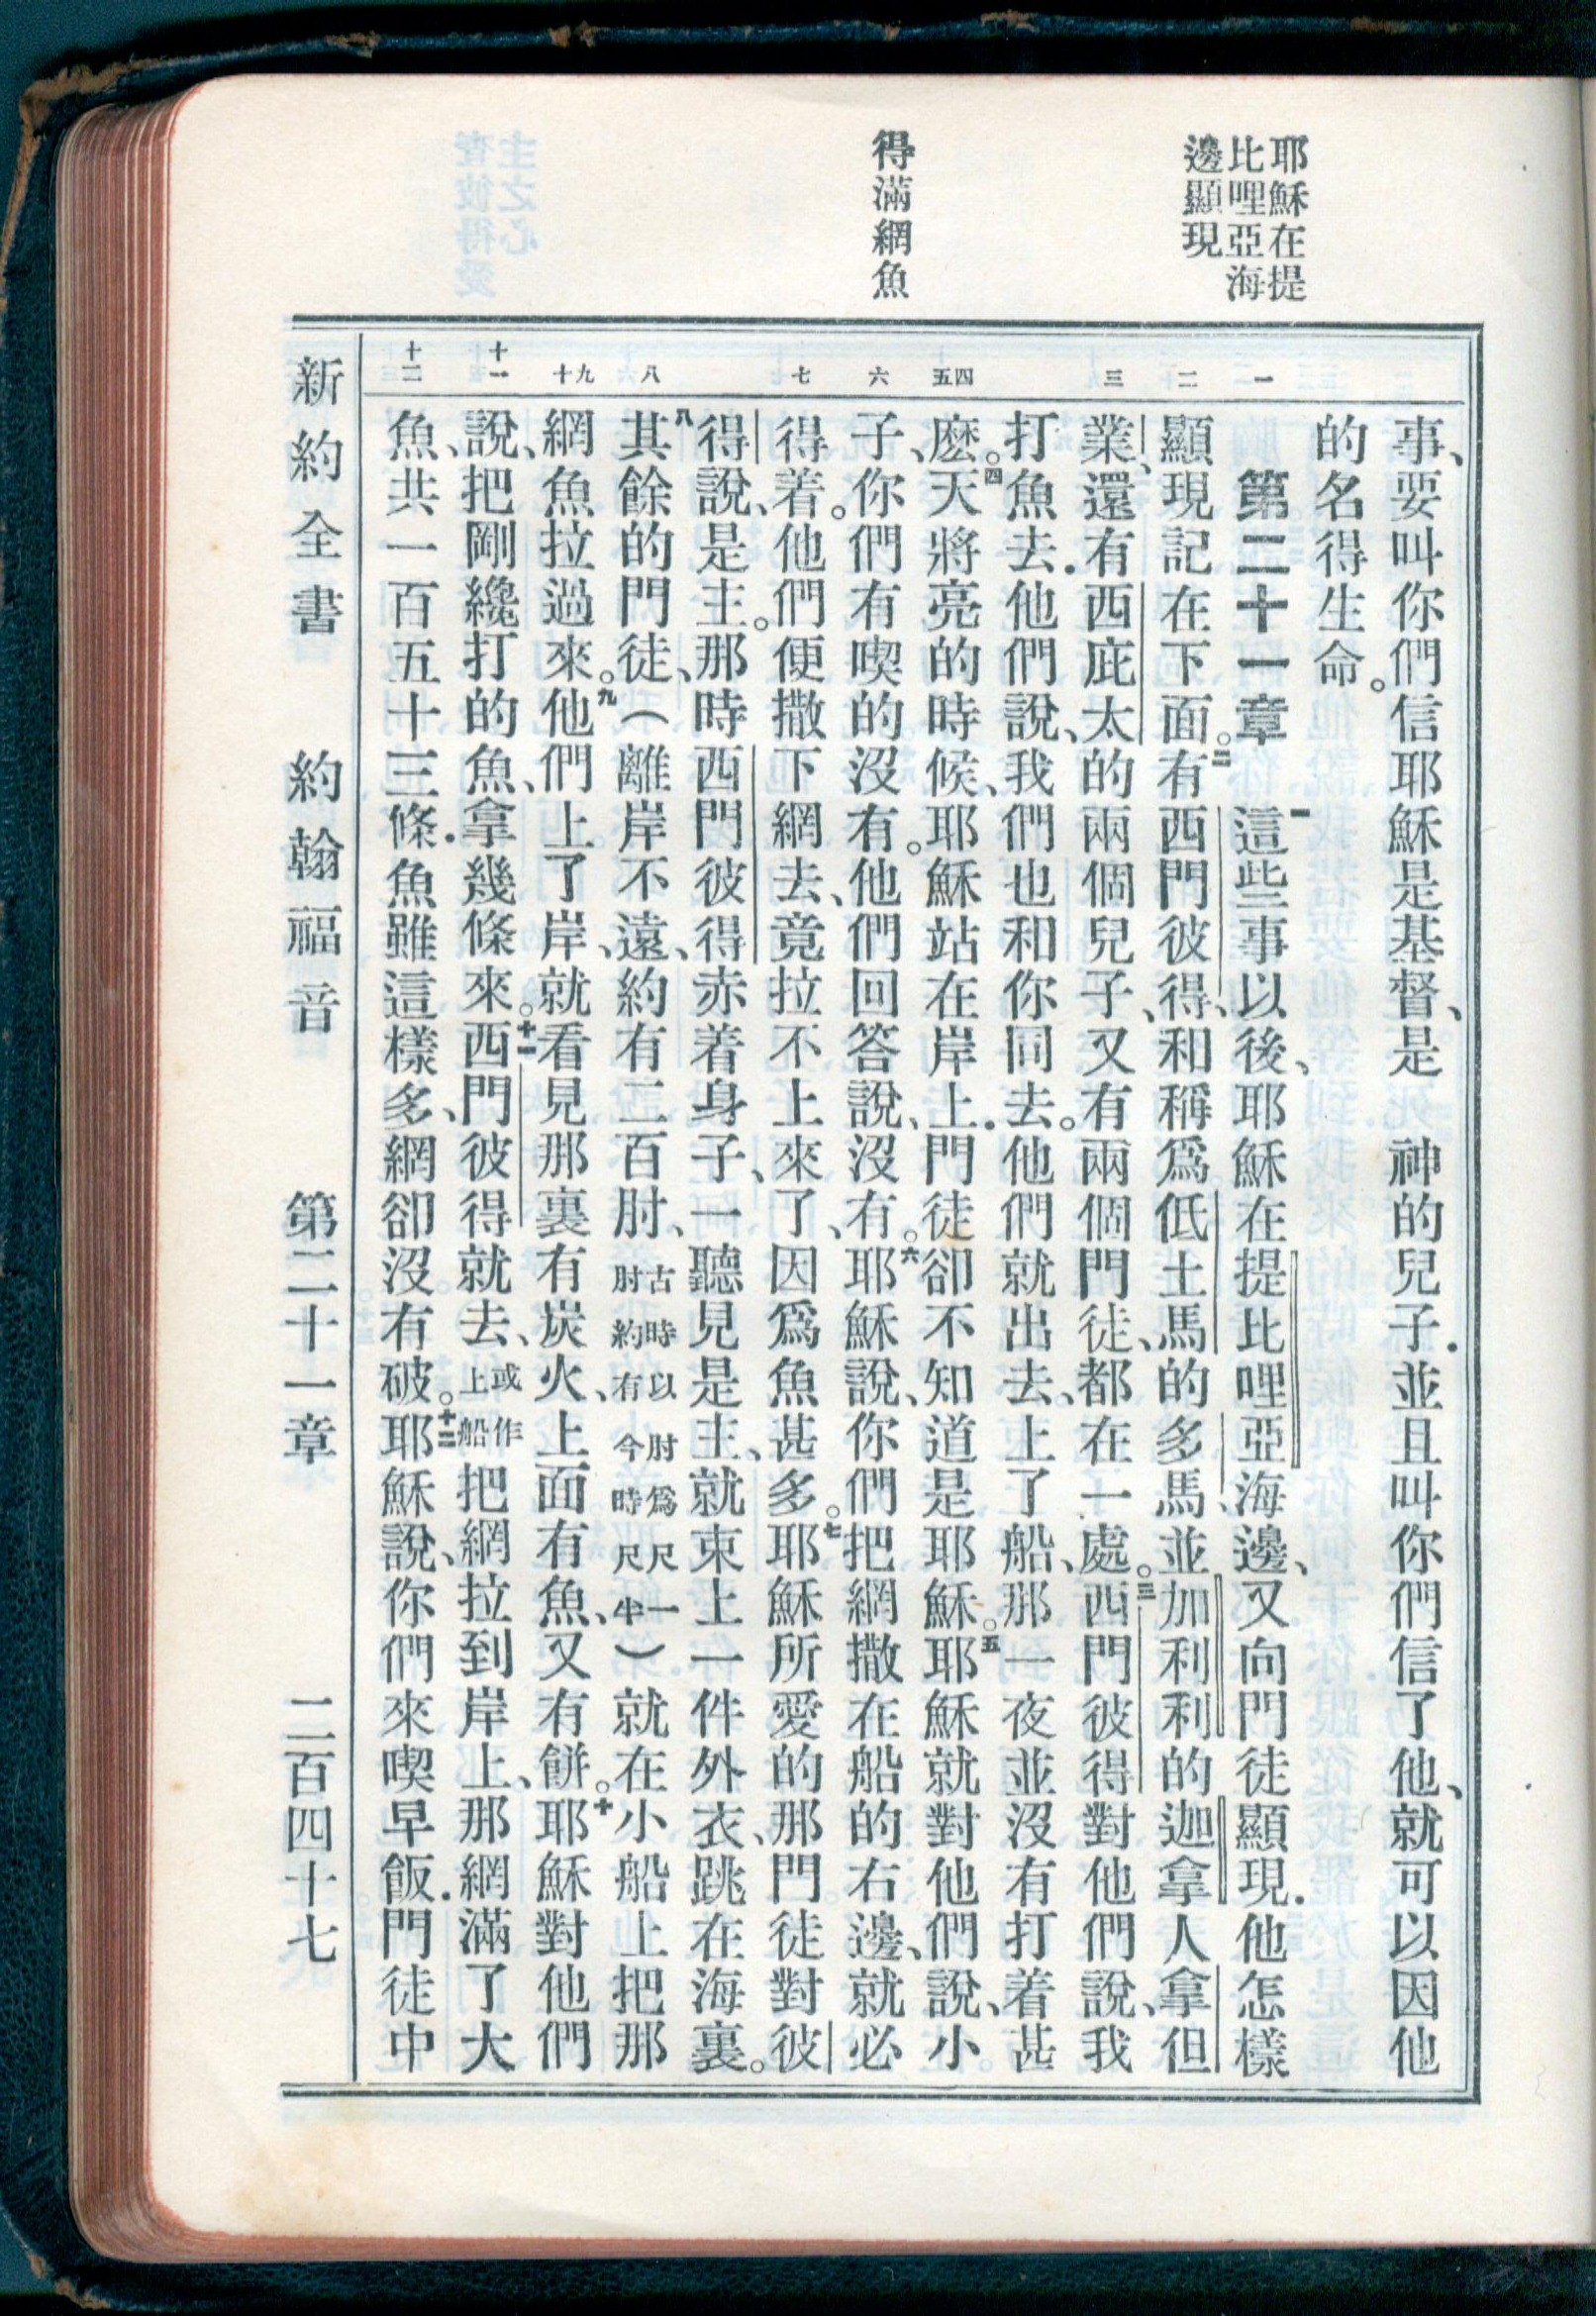 耶穌在提
比哩亞海
邊顯現
得滿網魚
一
二
三
四
五
六
七
八
九
十
十一
十二
事、要叫你們信耶穌是基督、是　神的兒子．並且叫你們信了他、就可以因他
的名得生命。
第二十一章　一這些事以後、耶穌在提比哩亞海邊、又向門徒顯現．他怎樣
顯現記在下面。二有西門彼得、和稱爲低土馬的多馬、並加利利的迦拿人拿但
業、還有西庇太的兩個兒子、又有兩個門徒、都在一處。三西門彼得對他們說、我
打魚去．他們說、我們也和你同去。他們就出去、上了船、那一夜並沒有打着甚
麽。四天將亮的時候、耶穌站在岸上．門徒卻不知道是耶穌。五耶穌就對他們說、小
子、你們有喫的沒有。他們回答說、沒有。六耶穌說、你們把網撒在船的右邊、就必
得着。他們便撒下網去、竟拉不上來了、因爲魚甚多。七耶穌所愛的那門徒對彼
得說、是主。那時西門彼得赤着身子、一聽見是主、就束上一件外衣、跳在海裏。
八其餘的門徒、（離岸不遠、約有二百肘、古時以肘爲尺一肘約有今時尺半）就在小船上把那
網魚拉過來。九他們上了岸、就看見那裏有炭火、上面有魚、又有餅。十耶穌對他們
說、把剛纔打的魚、拿幾條來。十一西門彼得就去、或作上船把網拉到岸上、那網滿了大
魚、共一百五十三條．魚雖這樣多、網卻沒有破。十二耶穌說、你們來喫早飯．門徒中
新約全書　約翰福音　第二十一章　二百四十七